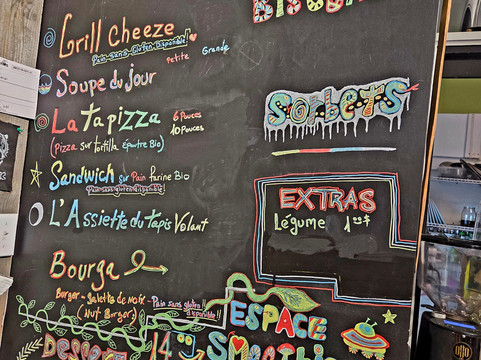 Grill cheeze
Pain sans Gluten disponible!
Petite Grande
Soupe du jour
La tapizza 6 Pouces
10 Pouces
(Pizza sur tortilla Épautre Bio)
Sandwich sur Pain farine Bio
Pain sans gluten disponible
L'Assiette du tapis Volant
Bourgo
Burger - Galette de Noix - Pain sans gluten
disponible!!
(Nut Burger)
Dessert
14
SORBETS
EXTRAS
Légume 1.00$
ESPACE
Smoothie